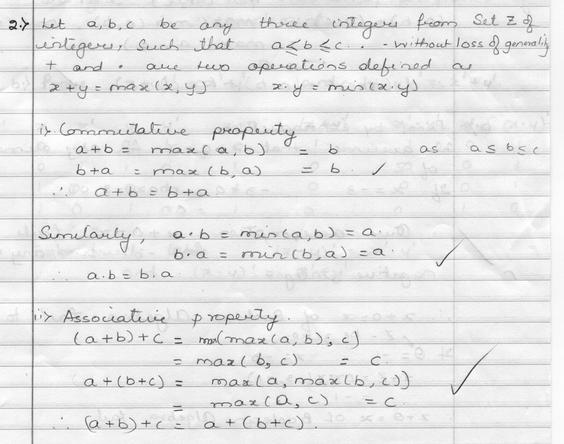 2.> Let a, b, c be any three integers from Set Z of
integers, Such that a ≤ b ≤ c . . - without loss of generality
+ and · are two operations defined as
x + y = max(x, y) x · y = min(x · y)
i> Commutative property
a + b = max(a, b) = b as a ≤ b ≤ c
b + a = max(b, a) = b ✓
∴ a + b = b + a
Similarly, a · b = min(a, b) = a.
b · a = min(b, a) = a. ✓
∴ a · b = b · a
ii> Associative property.
(a + b) + c = (max(a, b), c)
= max(b, c) = c.
a + (b + c) = max(a, max(b, c)) ✓
= max(a, c) = c.
∴ (a + b) + c = a + (b + c).